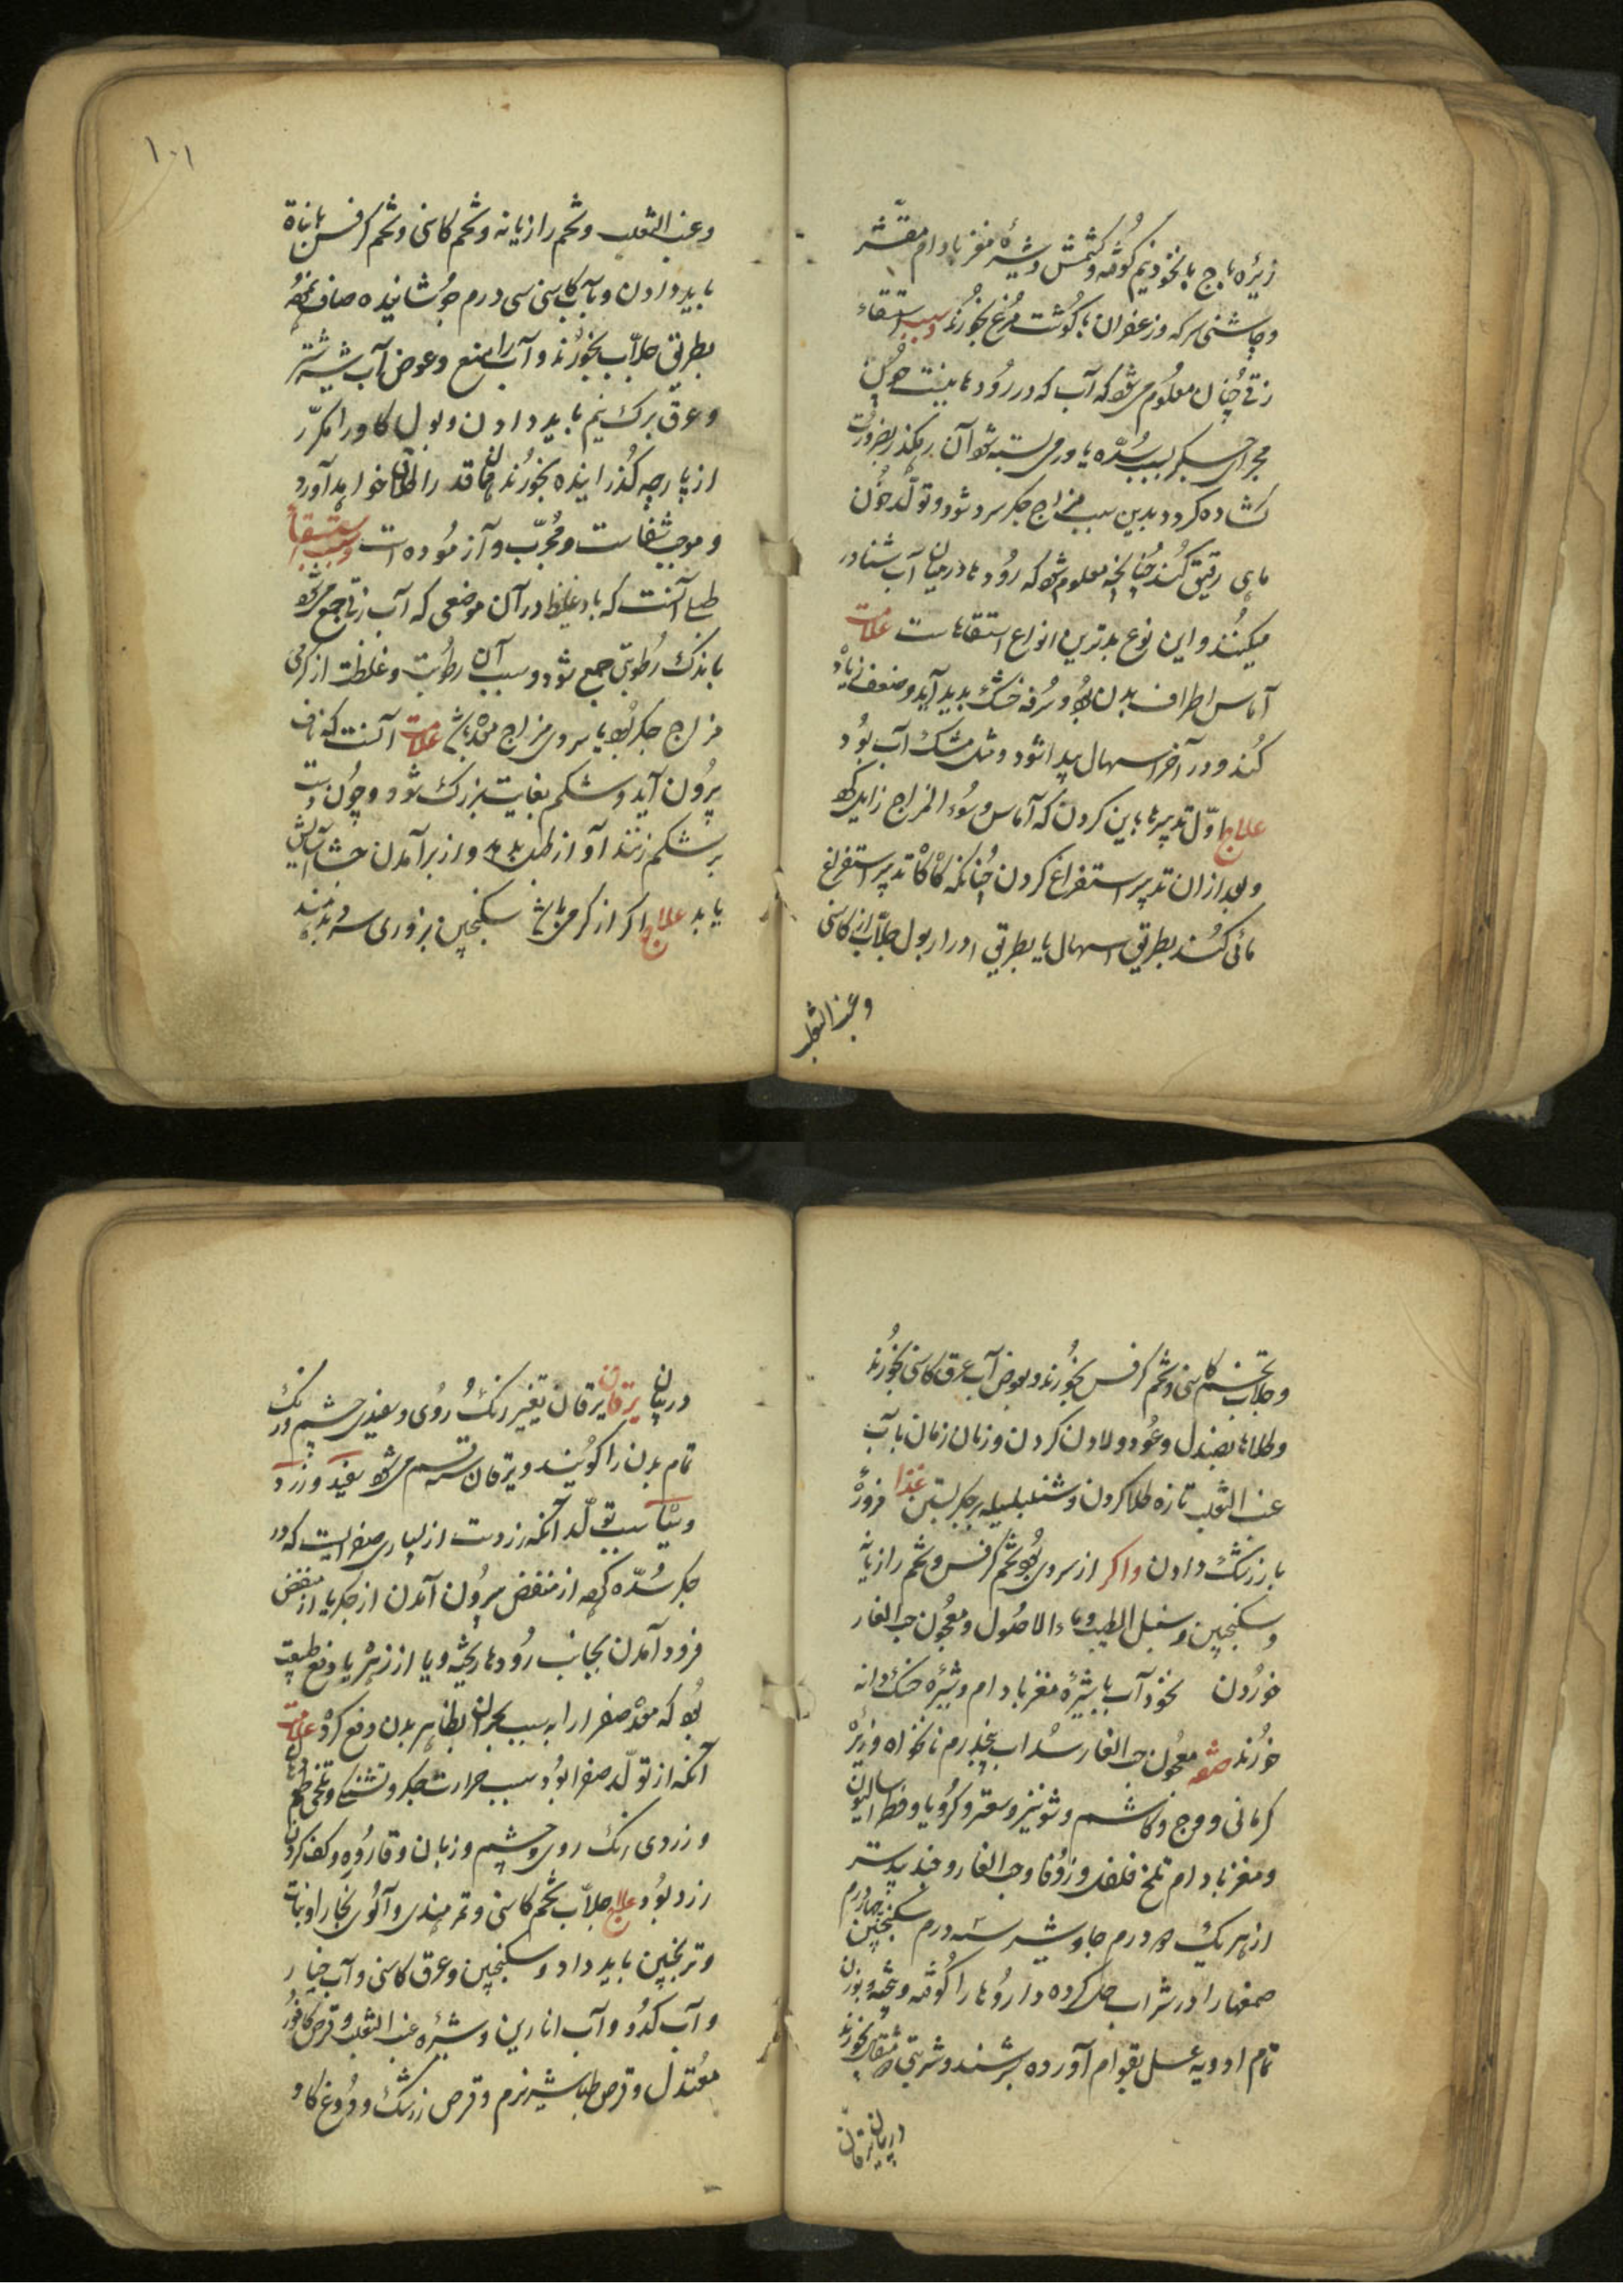 زیره باج با نخود نیم کوفته و کشمش و شیرهٔ مغز بادام مقشّر
و چاشنی سرکه و زعفران با کُوشت مُرغ بخورند و سبب استسقاء
زقے چُنان معلوم میشود که آب که در رُودها بینت چون
مجرای جکر بسبب سُدّه یا ورمی بسته شود آن رهکذر بضرورت
کشاده کردد بدین سبب مزاج جکر سرد شود و تولّد خُون
مایی رقیق کُند چُنانچه معلوم شود که رُودها در میان آب شناور
میکنند و این نوع بدترین انواع استسقاهاست علامت
آماس اطراف بدن بود و سُرفه خشک بدید آید و ضعف زیاد
کُند و در آخر اسهال پیدا شود و مثل مشک آب بُود
علاج اوّل تدبیر باین کردن که آماس و سُوء المزاج زایل کند
و بعد از ان تدبیر استفراغ کردن چُنانکه کاه کاه تدبیر استفراغ
مائی کنند بطریق اسهال یا بطریق ادرار بول جلّاب از کاسنی
و عنب الثعلب
۱۰۱
و عنب الثعلب و تخم رازیانه و تخم کاسنی و تخم کرفس با نبات
باید دادن و با آب کاسنی سی درم جُوشانیده صاف نموده
بطریق جلّاب بخورند و آب را منع و عوض آب شیر شتر
و عرق برک نیم باید دادن و بول کاو را مکرّر
از پارچه کُذرانیده بخورند همان قدر را اطلاق خواهد آورد
و موجب شفاست و مُجرّب و آزموده است و سبب استسقاء
طبلے آنست که باد غلیظ در آن موضعی که آب زقے جمع میشود
با اندک رطوبتی جمع شود و سبب آن رطوبت و غلظت از کرمی
مزاج جکر بود یا سردی مزاج معده باشد علامت آنست که ناف
بیرُون آید و شکم بغایت بزرک شود و چُون دست
بر شکم زنند آواز طبل بدید و از برآمدن جشا آسایش
یابد علاج اکر از کرمی باشد سکنجبین بزوری سرد بدهند
و جلاب تخم کاسنی و تخم کرفس بخورند و بعوض آب عرق کاسنی بخورند
و طلاها بصندل و عُود و لادن کردن و زمان زمان بآب
عنب الثعلب تازه طلا کردن و شنبلیله بر جکر بستن غذا مزورهٔ
با زرشک دادن و اکر از سردی بود تخم کرفس و تخم رازیانه
و سکنجبین و سنبل الطیب و ماء الاصُول و معجُون حب الغار
خوردن نخود آب با شیرهٔ مغز بادام و شیرهٔ خسک دانه
خورند صفت معجُون حب الغار سُداب پنج درم نانخواه و زیره
کرمانی و وج و کاشم و شونیز و سعتر و کرُویا و فطراسالیون
و مغز بادام تلخ فلفل و زُوفا و حب الغار و جند بیدستر
از هر یک ۵ درم جاوشیر سه درم سکبینج چهار درم
صمغها را در شراب حل کرده داروُها را کُوفته و بیخته و بوزن
تمام ادویه عسل بقوام آورده بسرشند و شربتی ۵ مثقال بخورند
در بیان یرقان
در بیان یرقان یرقان تغییر رنک رُوی و سفیدی چشم و رنک
تمام بدن را کویند و یرقان سه قسم میشود سفید و زرد
و سیاه سبب تولّد آنکه زردست از بسیاری صفراست که در
جکر سُدّه کند از منفض بیرُون آمدن از جکر یا از منفض
فرود آمدن بجانب رُودها ریخته و یا از زهره یا دفع طبیعت
بود که معده صفرا را به سبب بحران بظاهر بدن دفع کرد علامت
آنکه از تولّد صفرا بُود سبب حرارت جکر و تشنکے و تلخی طعم دهان
و زردی رنک روی و چشم و زبان و قاروره و کف کردن
زرد بُود علاج جلاّب تخم کاسنی و تمر هندی و آلُوی بخارا و نبات
و ترنجبین باید داد و سکنجبین و عرق کاسنی و آب خیار
و آب کدو و آب انارین و شیرهٔ عنب الثعلب و قرص کافور
معتدل و قرص طباشیر نرم و قرص زرشک و دوغ کاو